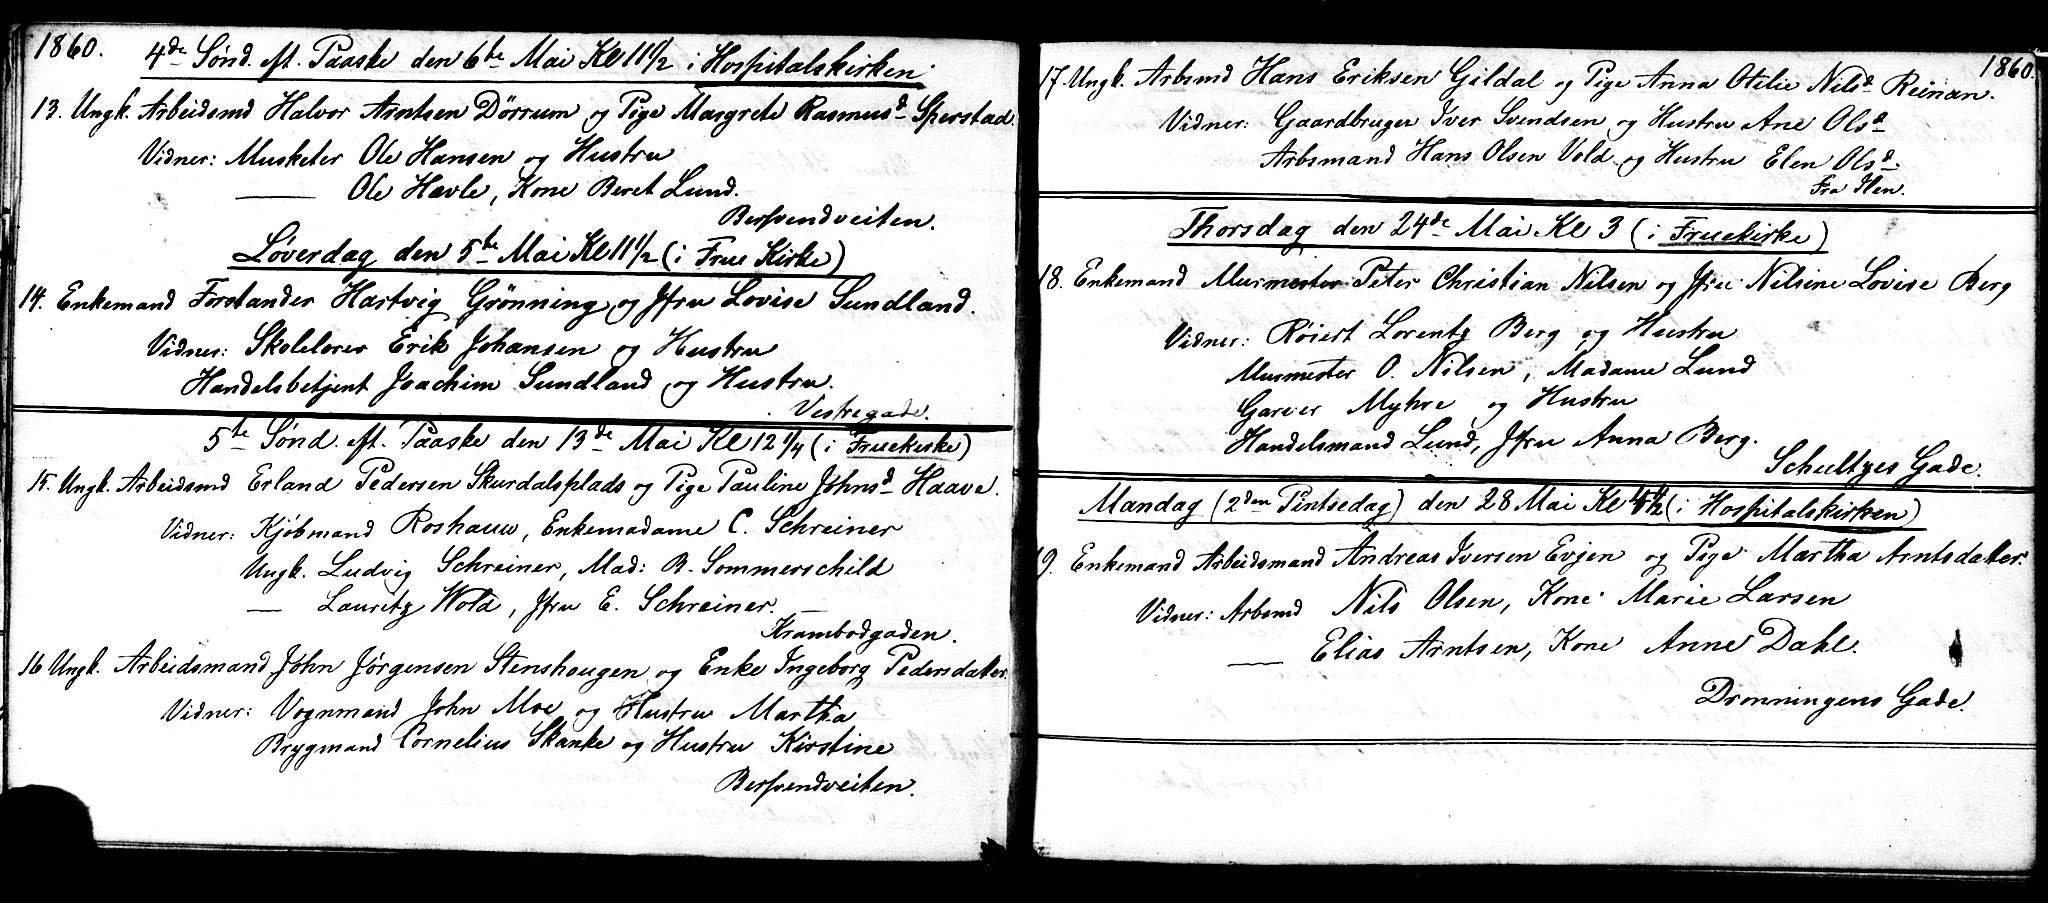 1860.
4de Sønd. eft. Paaske den 6te Mai Kl 11 1/2 i Hospitalskirken
13. Ungk. Arbeidsmd Halvor Arntsen Dörrum og Pige Margrete Rasmusd. Sperstad.
Vidner: Musketer Ole Hansen og Hustru
—— Ole Havle, Kone Beret Lund.
Bersvendveiten.
Løverdag den 5te Mai Kl 11 1/2 (i Frue Kirke)
14. Enkemand Forstander Hartvig Grønning og Jfru Lovise Sundland.
Vidner: Skolelærer Erik Johansen og Hustru
Handelsbetjent Joachim Sundland og Hustru.
Vestregade.
5te Sønd. eft. Paaske den 13de Mai Kl 12 1/4 (i Fruekirke)
15. Ungk. Arbeidsmd Erland Pedersen Skurdalsplads og Pige Pauline Johnsd. Haave.
Vidner: Kjøbmand Roshauw, Enkemadame C. Schreiner
Ungk. Ludvig Schreiner, Mad: B. Sommerschild
— Lauretz Wold, Jfru E. Schreiner. —
Krambodgaden.
16 Ungk. Arbeidsmand John Jørgensen Stenshaugen og Enke Ingeborg Pedersdatter.
Vidner: Vognmand John Moe og Hustru Martha
Brygmand Cornelius Skanke og Hustru Kirstine
Bersvendveiten.
1860.
17. Ungk. Arbsmd Hans Eriksen Gildal og Pige Anna Otilie Nilsd. Reinan.
Vidner: Gaardbruger Iver Svendsen og Hustru Ane Olsd
Arbsmand Hans Olsen Vold og Hustru Elen Olsd.
Fra Ilen.
Thorsdag den 24de Mai Kl 3 (i Fruekirke)
18. Enkemand Murmester Peter Christian Nilsen og Jfru Nilsine Lovise Berg
Vidner: Røiert Lorentz Berg og Hustru
Murmester O. Nilsen, Madame Lund
Garver Myhre og Hustru
Handelsmand Lund, Jfru Anna Berg.
Schultzes Gade.
Mandag (2den Pintsedag) den 28 Mai Kl (i Hospitalskirken)
19. Enkemand Arbeidsmand Andreas Iversen Evjen og Pige Martha Arntsdatter.
Vidner: Arbsmd Nils Olsen, Kone Marie Larsen
—— Elias Arntsen, Kone Anne Dahl.
Dronningens Gade.